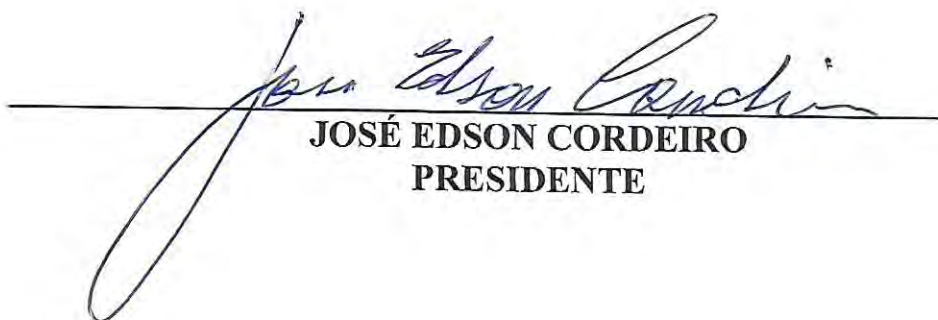 José Edson Cordeiro
JOSÉ EDSON CORDEIRO
PRESIDENTE